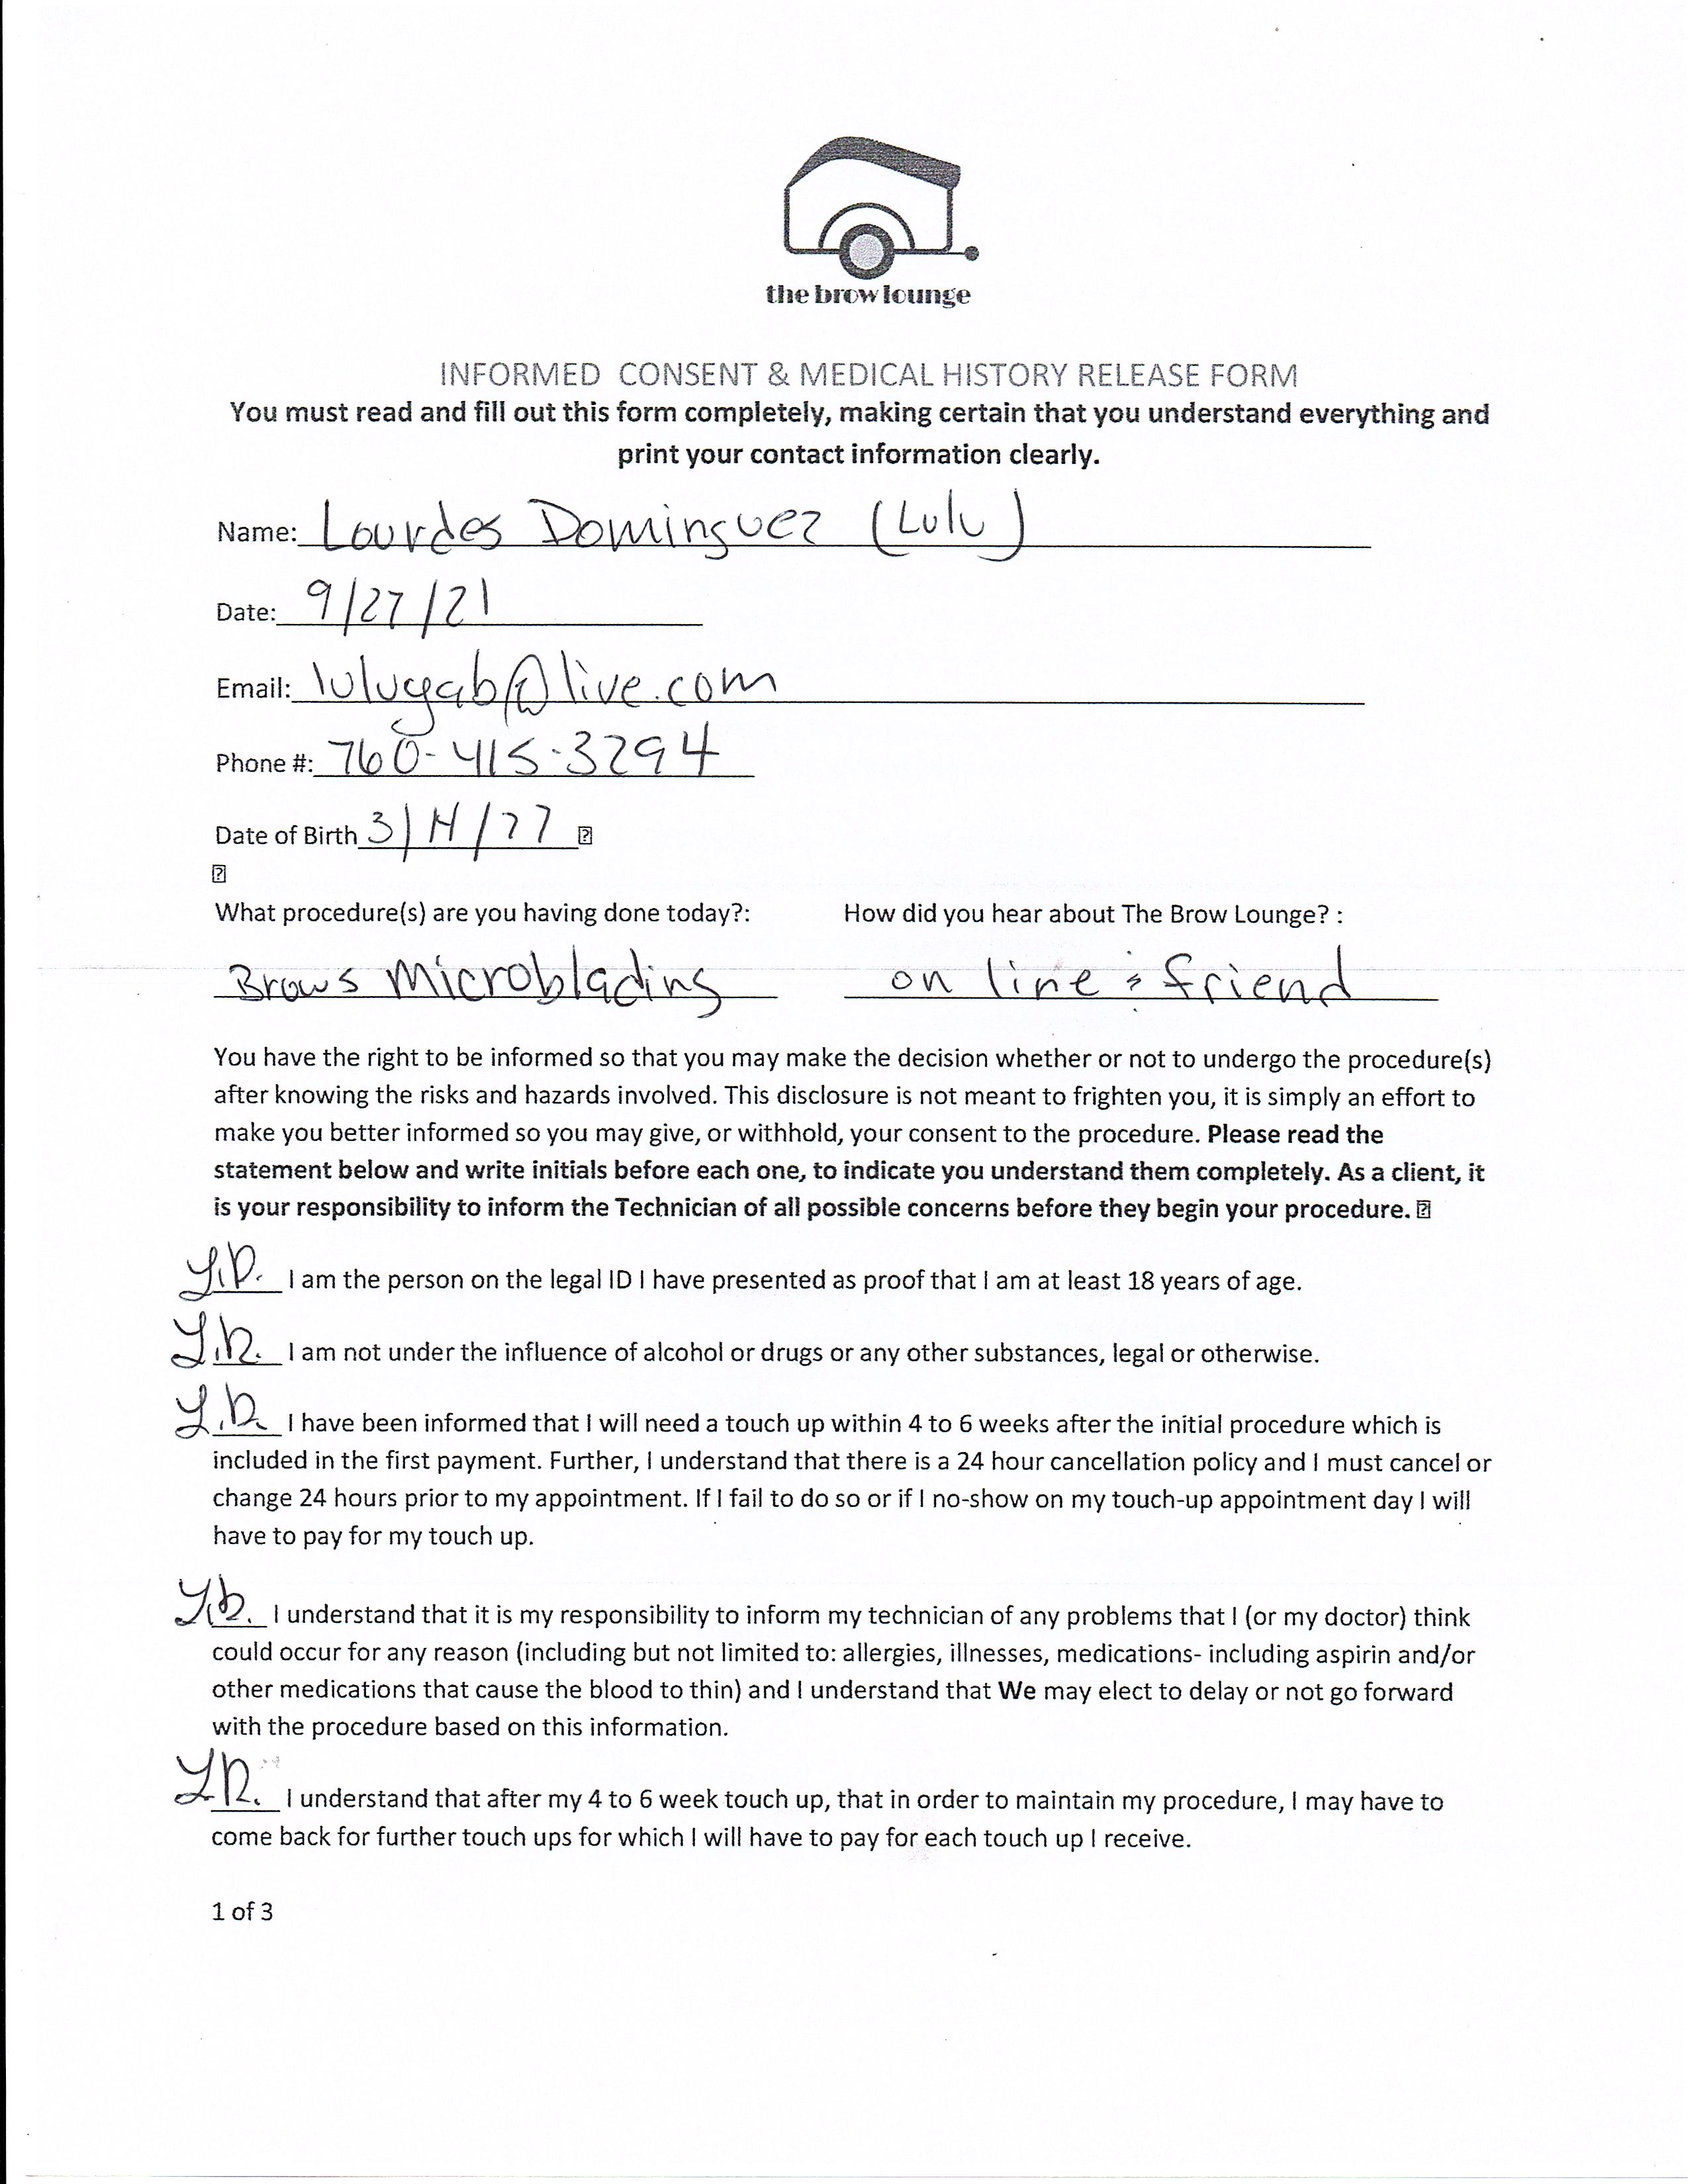 the brow lounge
INFORMED CONSENT & MEDICAL HISTORY RELEASE FORM
You must read and fill out this form completely, making certain that you understand everything and
print your contact information clearly.
Name: Lourdes Dominguez (Lulu)
Date: 9/27/21
Email: lulugab@live.com
Phone #: 760-415-3294
Date of Birth 3/14/77
What procedure(s) are you having done today?: How did you hear about The Brow Lounge? :
Brows Microblading on line & friend
You have the right to be informed so that you may make the decision whether or not to undergo the procedure(s)
after knowing the risks and hazards involved. This disclosure is not meant to frighten you, it is simply an effort to
make you better informed so you may give, or withhold, your consent to the procedure. Please read the
statement below and write initials before each one, to indicate you understand them completely. As a client, it
is your responsibility to inform the Technician of all possible concerns before they begin your procedure.
L.D. I am the person on the legal ID I have presented as proof that I am at least 18 years of age.
L.D. I am not under the influence of alcohol or drugs or any other substances, legal or otherwise.
L.D. I have been informed that I will need a touch up within 4 to 6 weeks after the initial procedure which is
included in the first payment. Further, I understand that there is a 24 hour cancellation policy and I must cancel or
change 24 hours prior to my appointment. If I fail to do so or if I no-show on my touch-up appointment day I will
have to pay for my touch up.
L.D. I understand that it is my responsibility to inform my technician of any problems that I (or my doctor) think
could occur for any reason (including but not limited to: allergies, illnesses, medications- including aspirin and/or
other medications that cause the blood to thin) and I understand that We may elect to delay or not go forward
with the procedure based on this information.
L.D. I understand that after my 4 to 6 week touch up, that in order to maintain my procedure, I may have to
come back for further touch ups for which I will have to pay for each touch up I receive.
1 of 3